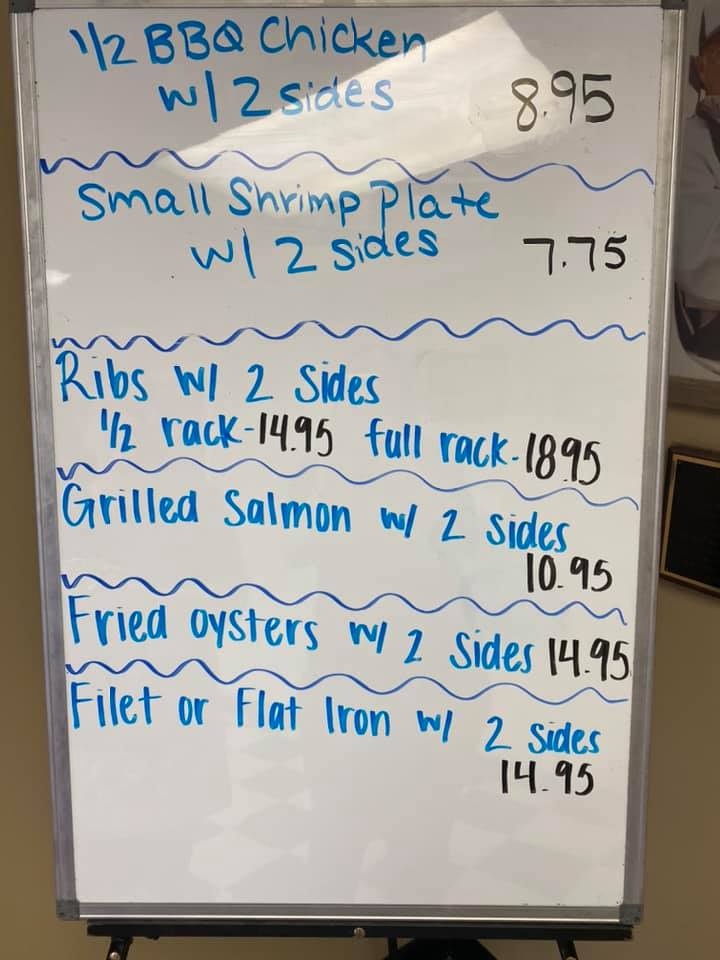 1/2 BBQ Chicken
w/ 2 sides 8.95
Small Shrimp Plate
w/ 2 sides 7.75
Ribs w/ 2 Sides
1/2 rack-14.95 full rack-18.95
Grilled Salmon w/ 2 Sides
10.95
Fried oysters w/ 2 Sides 14.95
Filet or Flat Iron w/ 2 Sides
14.95